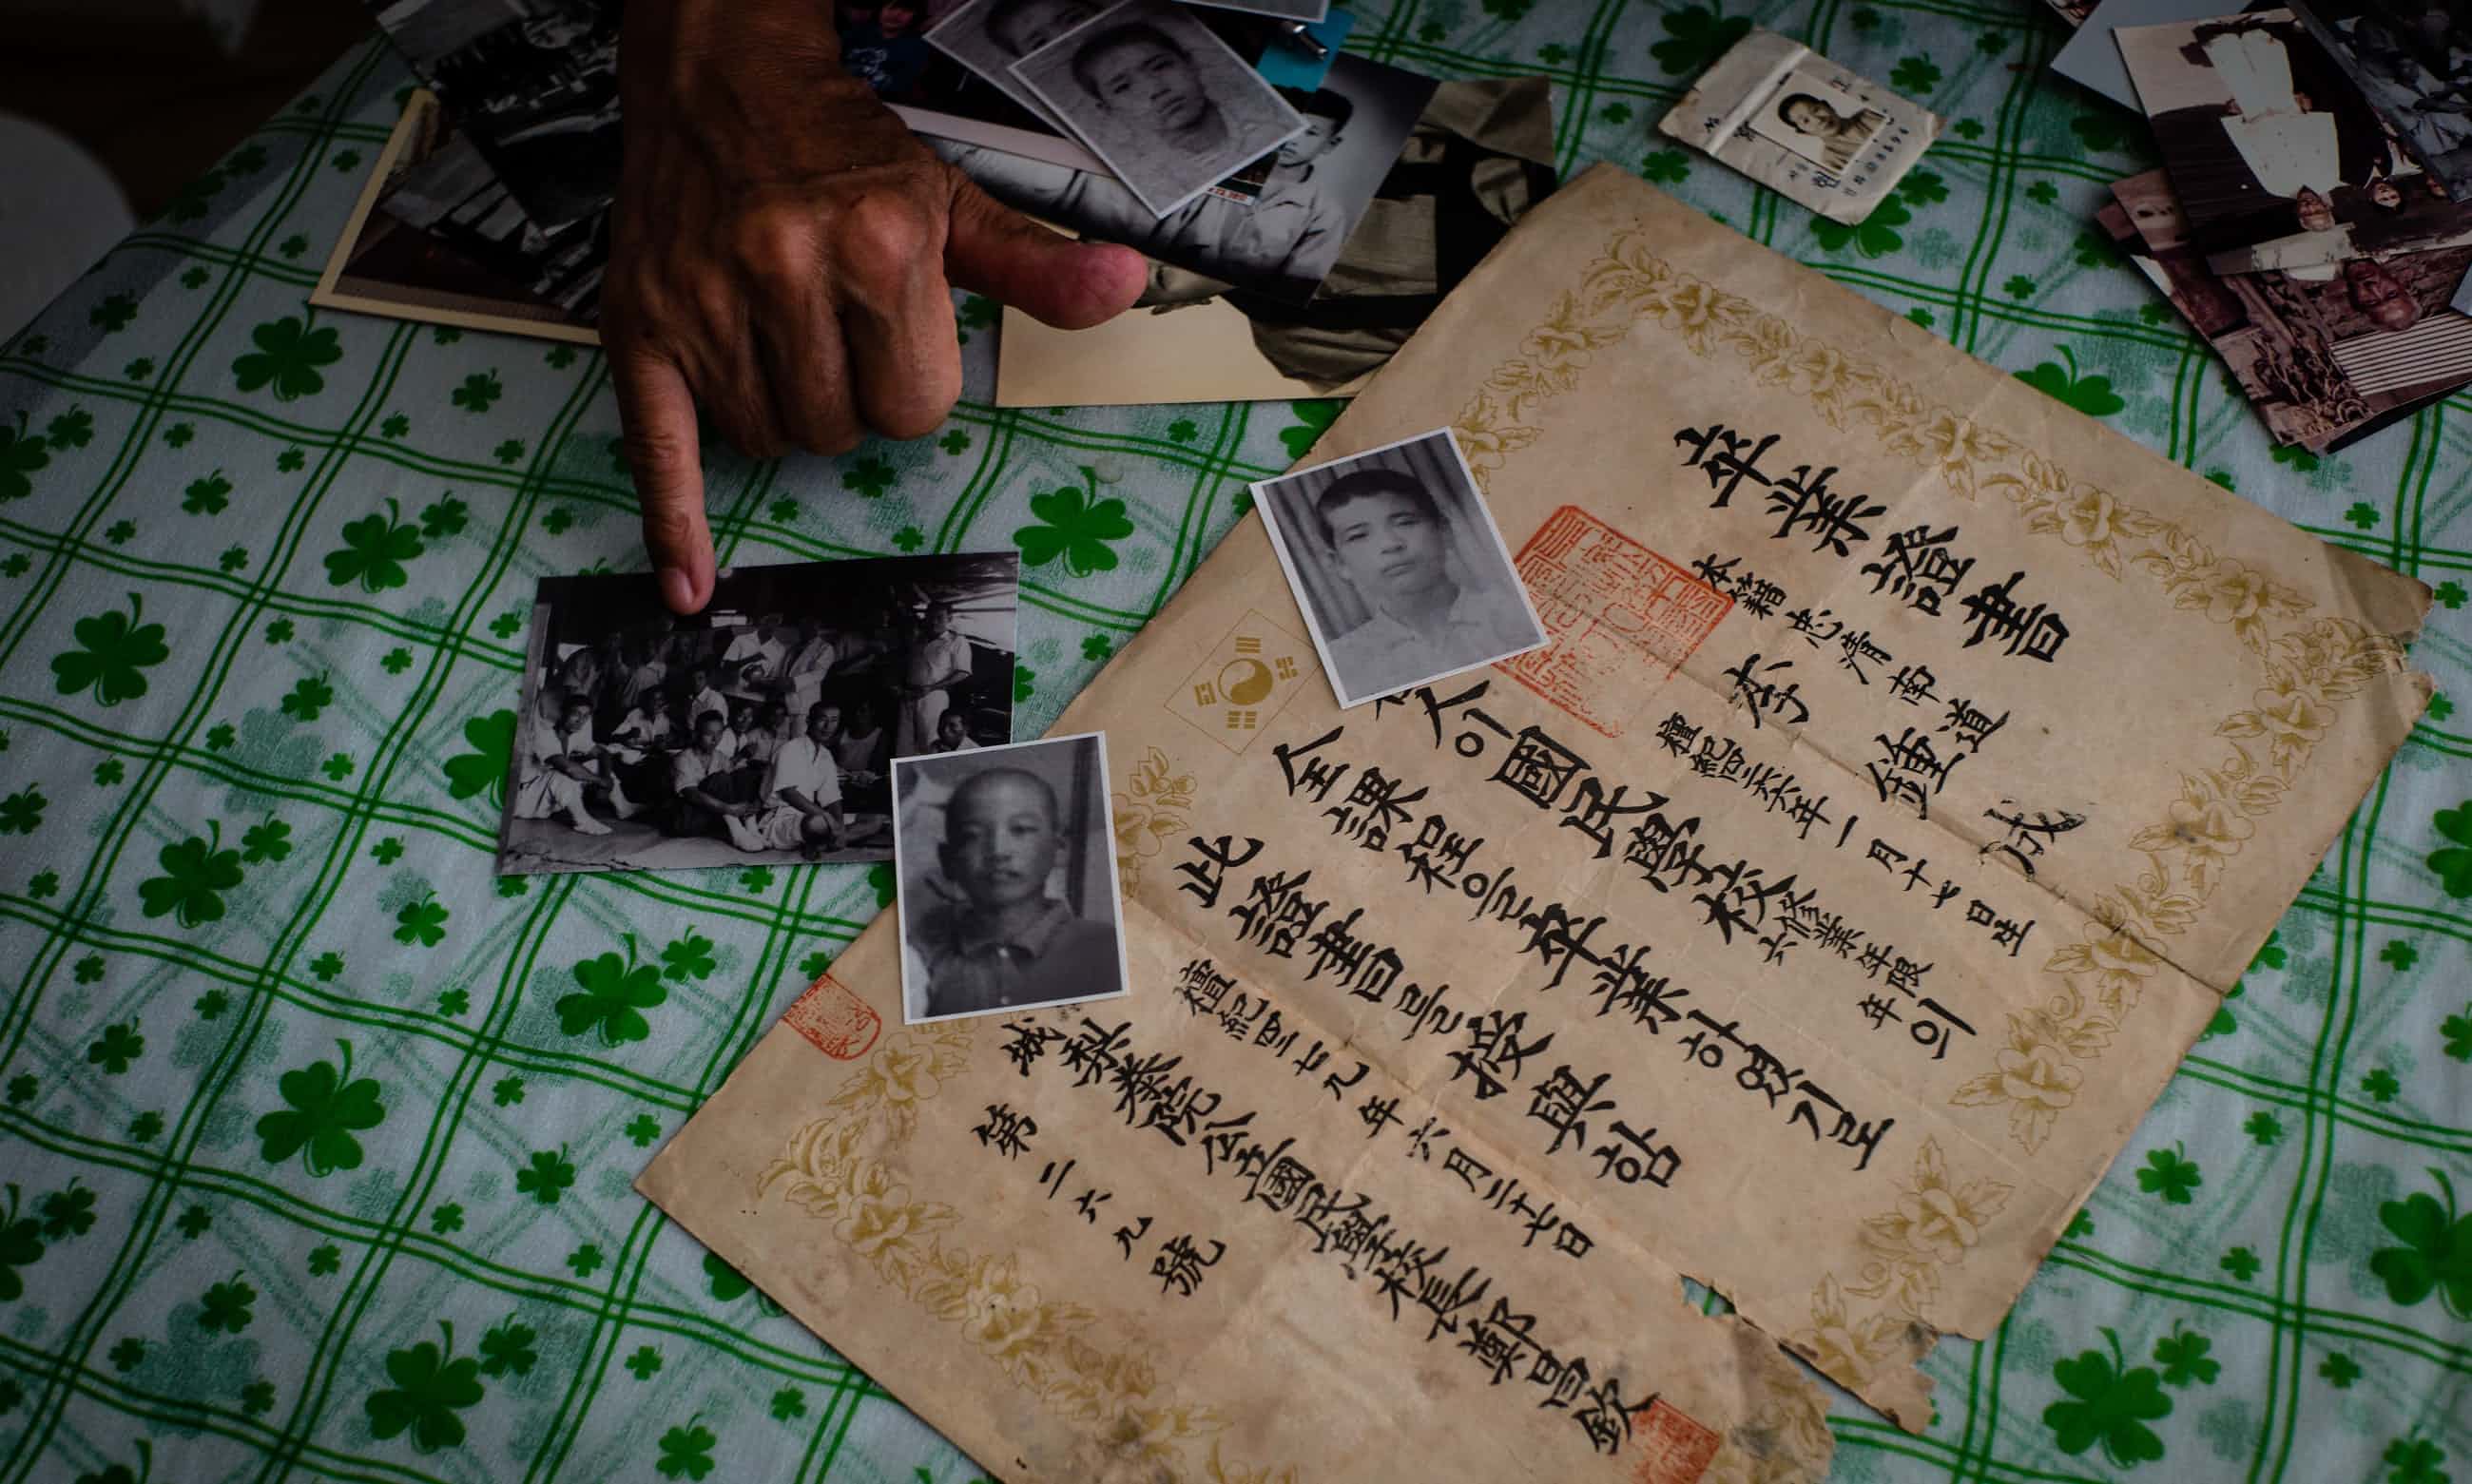 卒業證書
本籍 忠清南道
李鍾成
檀紀四二六六年一月十七日生
이國民學校修業年限六年의
全課程을卒業하였기로
此證書를授與함
檀紀四二七九年六月二十七日
城梨泰院公立國民學校長鄭昌欽
第二六九號